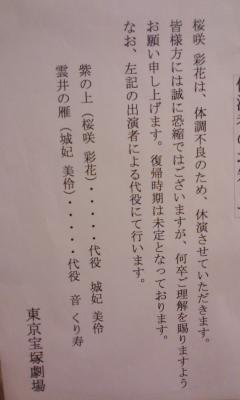 桜咲 彩花は、体調不良のため、休演させていただきます。
皆様方には誠に恐縮ではございますが、何卒ご理解を賜りますよう
お願い申し上げます。復帰時期は未定となっております。
なお、左記の出演者による代役にて行います。
紫の上（桜咲 彩花）・・・・・代役 城妃 美伶
雲井の雁（城妃 美伶）・・・・・代役 音 くり寿
東京宝塚劇場